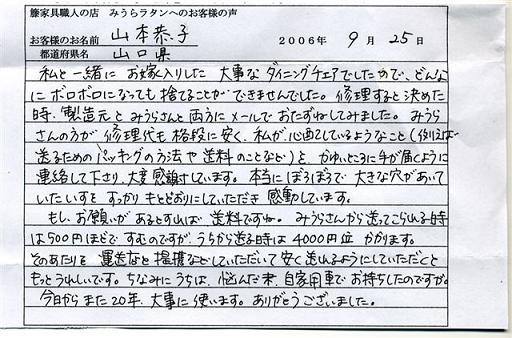 籐家具職人の店 みうらラタンへのお客様の声
お客様のお名前 山本恭子 2006年 9月 25日
都道府県名 山口県
私と一緒にお嫁入りした 大事なダイニングチェアでしたので、どんな
にボロボロになっても捨てることができませんでした。修理すると決めた
時、製造元とみうらさんと両方にメールでおたずねしてみました。みうら
さんの方が修理代も格段に安く、私が心配しているようなこと(例えば
送るためのパッキングの方法や送料のことなど)を かゆいところに手が届くように
連絡して下さり、大変感謝しています。本当にぼろぼろで大きな穴があいて
いたいすを すっかりもとどおりにしていただき 感動しています。
もし、お願いがあるとすれば 送料ですね。みうらさんから送ってこられる時
は500円ほどですむのですが、うちから送る時は4000円位 かかります。
そのあたりを 運送などと提携などしていただいて安く送れるようにしていただくと
もっとうれしいです。ちなみにうちは、悩んだ末、自家用車でお持ちしたのですが。
今日からまた20年、大事に使います。ありがとうございました。